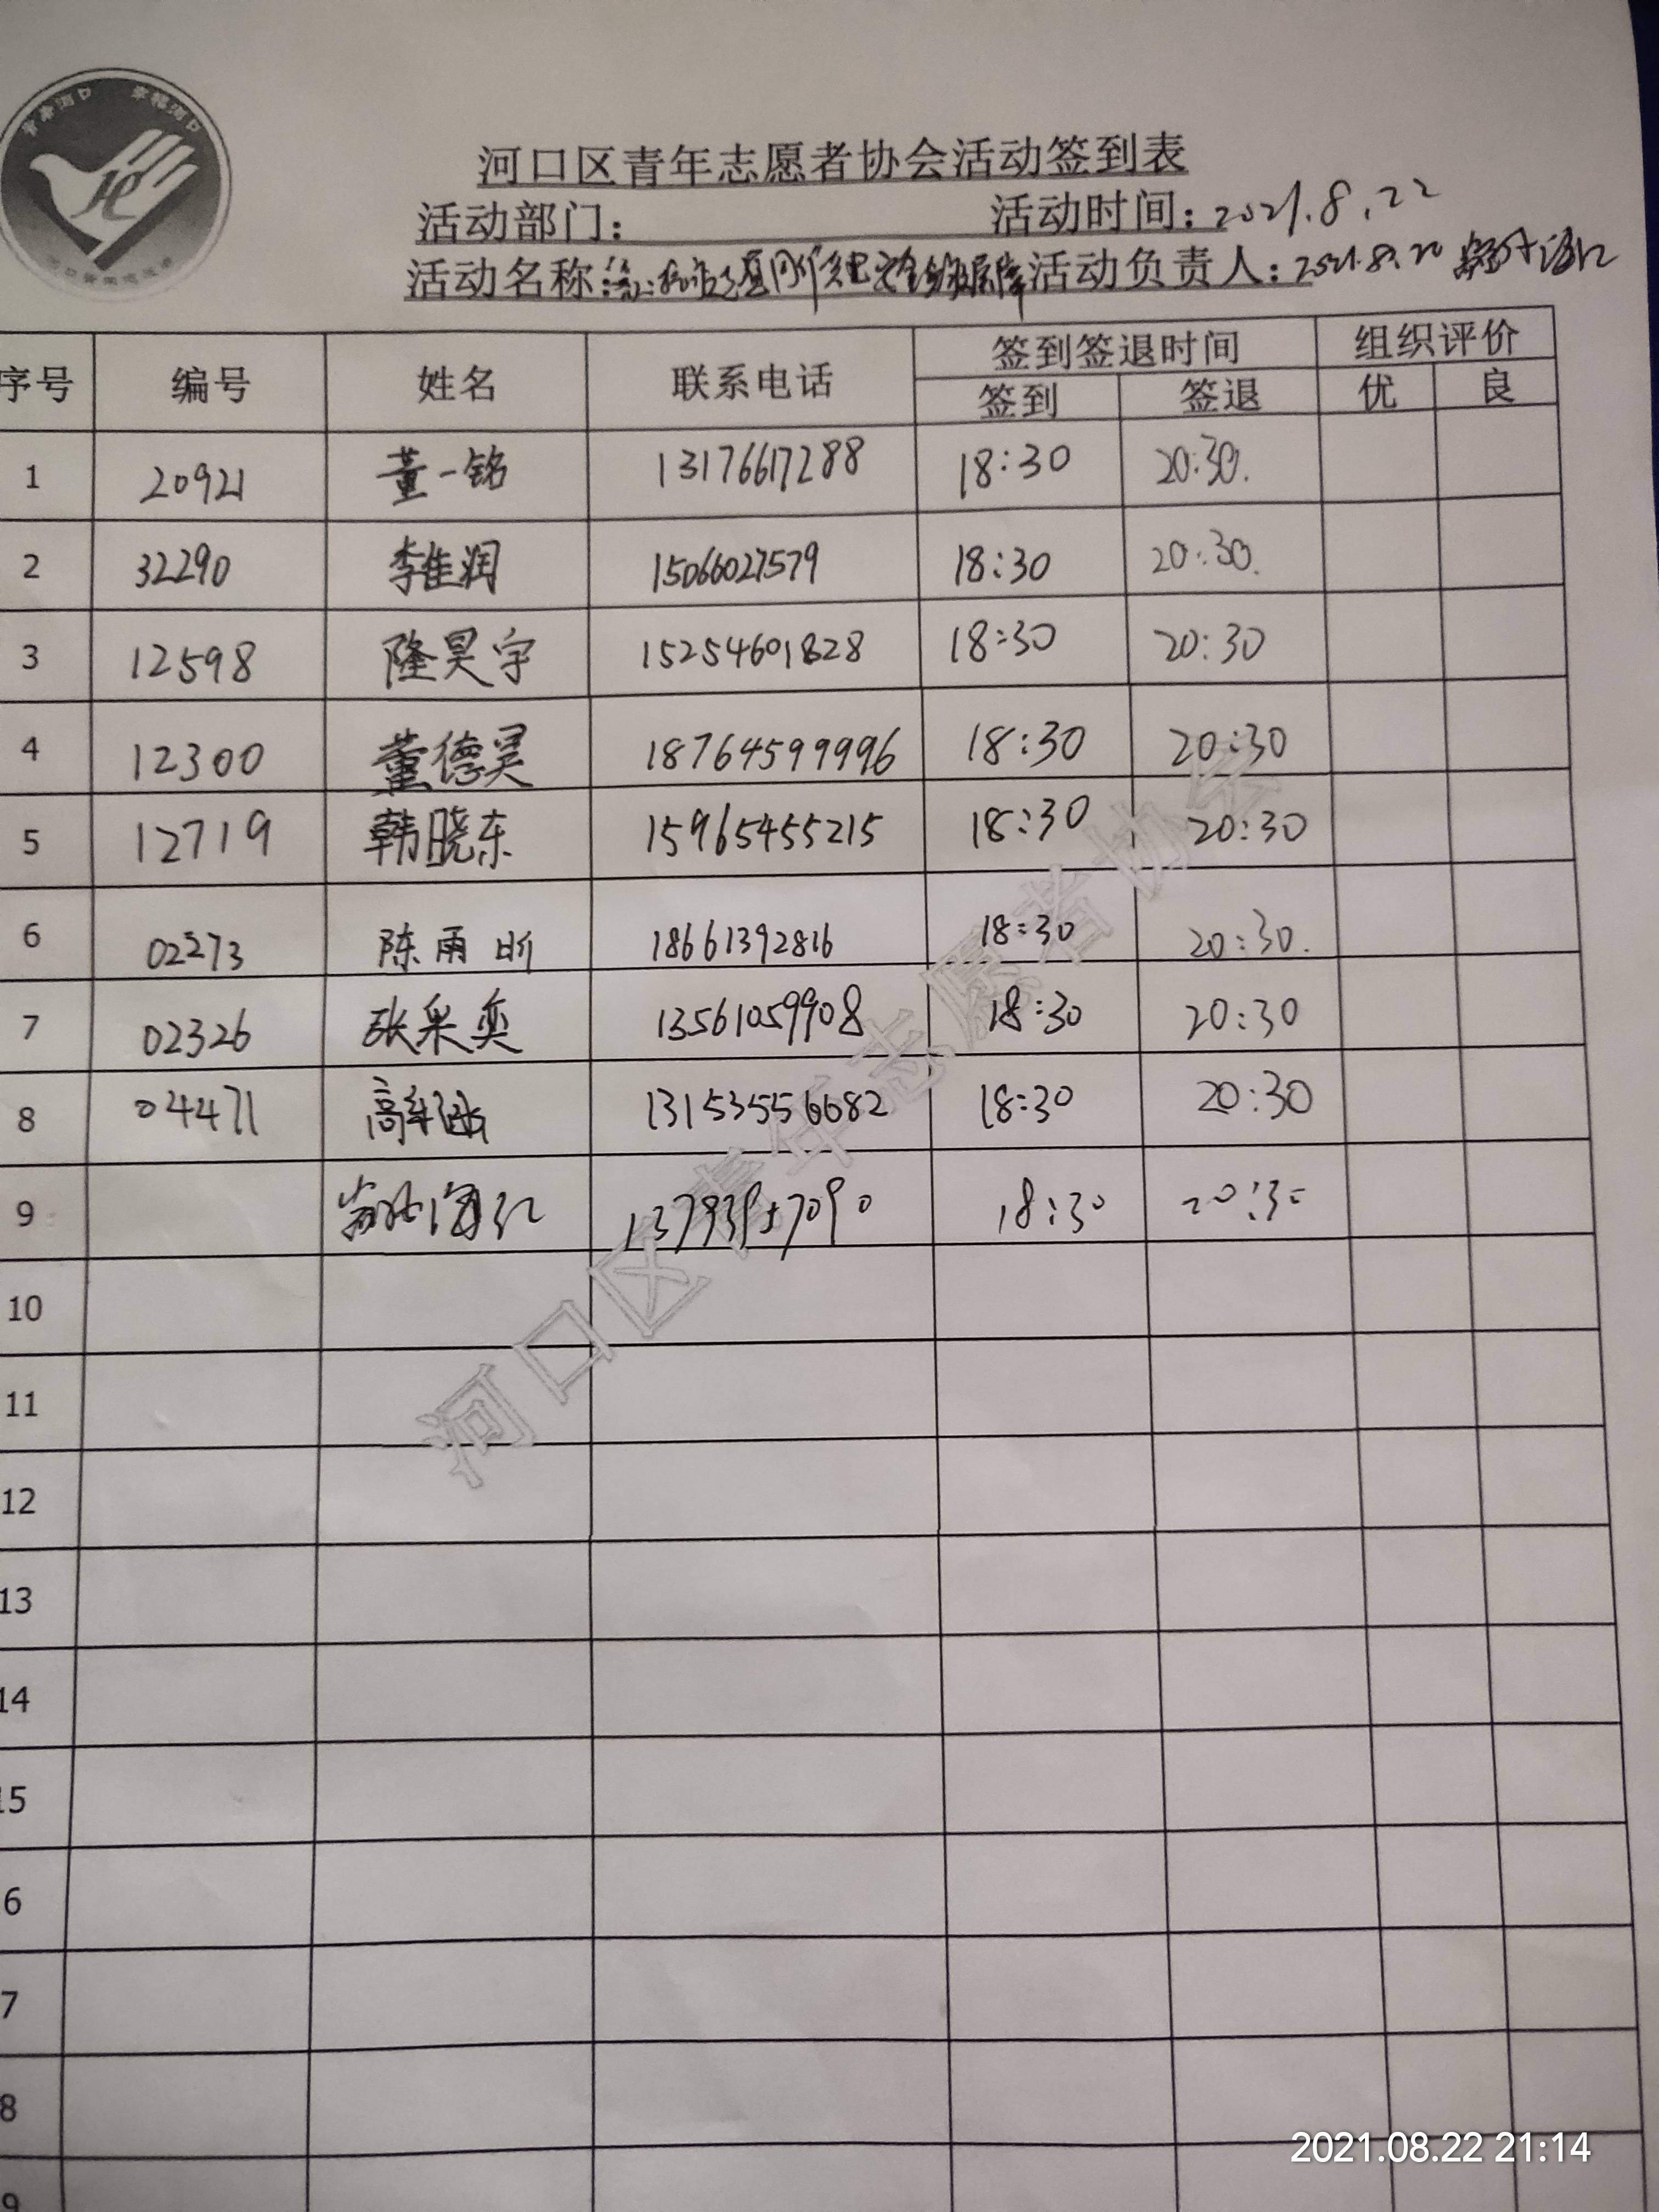 河口区青年志愿者协会活动签到表
活动部门： 活动时间：2021.8.22
活动名称： 活动负责人：2021.8.20
序号 编号 姓名 联系电话 签到签退时间 组织评价
签到 签退 优 良
1 20921 董一铭 13176617288 18:30 20:30.
2 32290 李佳润 15066027579 18:30 20:30.
3 12598 隆昊宇 15254601828 18:30 20:30
4 12300 董德昊 18764599996 18:30 20:30
5 12719 韩晓东 15965455215 18:30 20:30
6 02273 陈雨昕 18661392816 18:30 20:30.
7 02326 张果奕 13561059908 18:30 20:30
8 04471 高 13153556682 18:30 20:30
9 18:30 20:30
10
11
12
13
14
15
6
7
8
9
河口区青年志愿者协会
2021.08.22 21:14